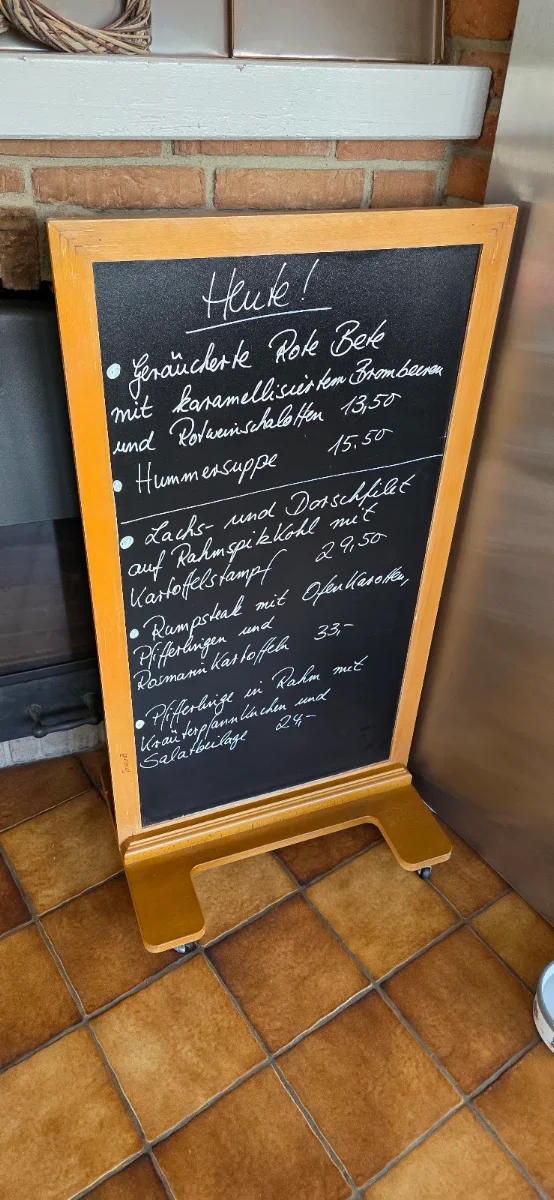 Heute!
• Geräucherte Rote Bete
mit karamellisiertem Brombeeren
und Rotweinschalotten 13,50
• Hummersuppe 15,50
• Lachs- und Dorschfilet
auf Rahmspitzkohl mit
Kartoffelstampf 29,50
• Rumpsteak mit Ofenkarotten,
Pfifferlingen und
Rosmarinkartoffeln 33,-
• Pfifferlinge in Rahm mit
Kräuterpfannkuchen und
Salatbeilage 24,-